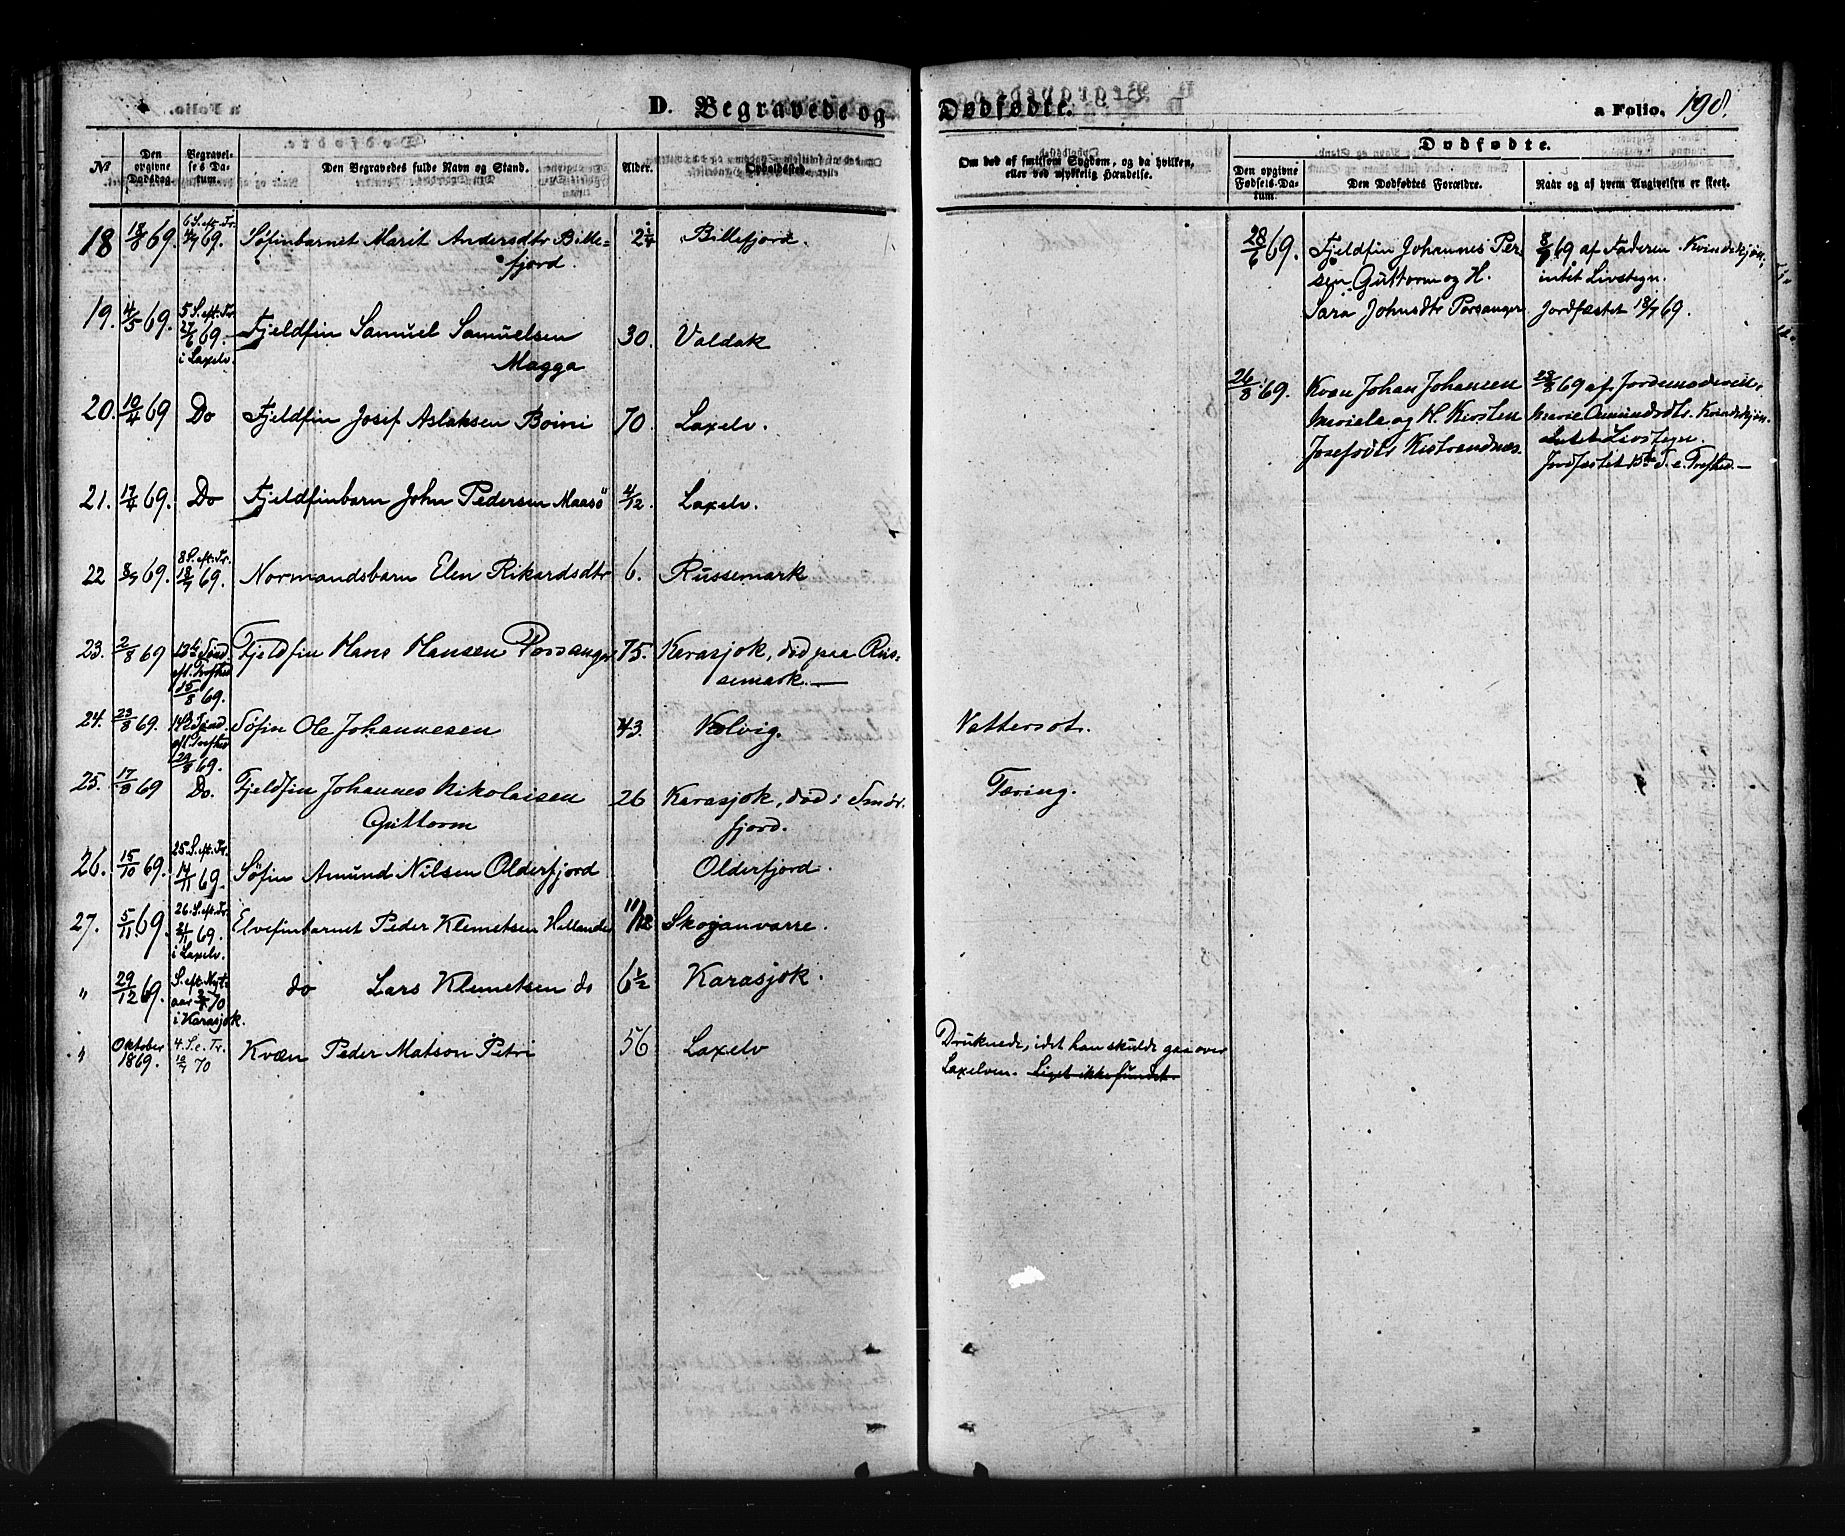 D. Begravede og Dødfødte.
a Folio. 198.
No
Den opgivne Dødsdag.
Begravelses Datum.
Den Begravedes fulde Navn og Stand.
Alder.
Opholdssted.
Om død af smitsom Sygdom, og da hvilken,
eller ved ulykkelig Hændelse.
Dødfødte.
Den opgivne Fødsels-Datum.
Den Dødfødtes Forældre.
Naar og af hvem Angivelsen er skeet.
18 18/8 69. 6 S. eft. Tr. 4/7 69. Søfinbarnet Marit Andersdtr Bille- 2 1/4 Billefjord.
fjord.
19. 4/5 69. 5 S. eft. Tr. 27/6 69. i Laxelv. Fjeldfin Samuel Samuelsen 30. Valdak
Magga
20. 10/4 69 Do Fjeldfin Josef Aslaksen Boini 70. Laxelv.
21. 17/4 69. Do Fjeldfinbarn John Pedersen Maasø 4/12. Laxelv.
22 8/7 69. 8 S. eft. Tr. 18/7 69. Normandsbarn Elen Rikardsdtr 6. Russemark
23. 2/8 69 12te Sønd. eft. Trefhed 15/8 69. Fjeldfin Hans Hansen Porsanger 75. Karasjok, død paa Rus-
semark.
24. 23/8 69. 14de Sønd. eft. Trefhed 29/8 69. Søfin Ole Johannesen 43. Kolvig. Vattersot.
25. 17/8 69 Do. Fjeldfin Johannes Nikolaisen 26 Karasjok, død i Smør- Tæring.
Guttorm fjord.
26. 15/10 69. 25 S. eft. Tr. 14/11 69. Søfin Amund Nilsen Olderfjord Olderfjord.
27. 5/11 69. 26. S. eft. Tr. 21/11 69. i Laxelv. Elvefinbarnet Peder Klemetsen Hellander 11/12 Skoganvarre.
" 29/12 69. S. eft. Nyt- aar 2/1 70 i Karasjok. do Lars Klemetsen do 6 1/2 Karasjok.
" Oktober 1869. 4. S. e. Tr. 10/7 70 Kvæn Peder Matson Petri 56 Laxelv Druknede, idet han skulde gaa over
Laxelven. Liget ikke fundet.
28/6 69. Fjeldfin Johannes Per- 8/7 69 af Faderen. Kvindekjøn,
sen Guttorm og H. intet Livstegn.
Sara Johnsdtr Porsanger Jordfæstet 18/7 69.
26/8 69. Kvæn Johan Johansen 28/8 69 af Jordemoderen
og H. Kirsten Marie Amundsdtr. Kvindekjøn.
Josefsdtr Kistrandnæs. Intet Livstegn.
Jordfæstet 15de S. e. Trefhed.